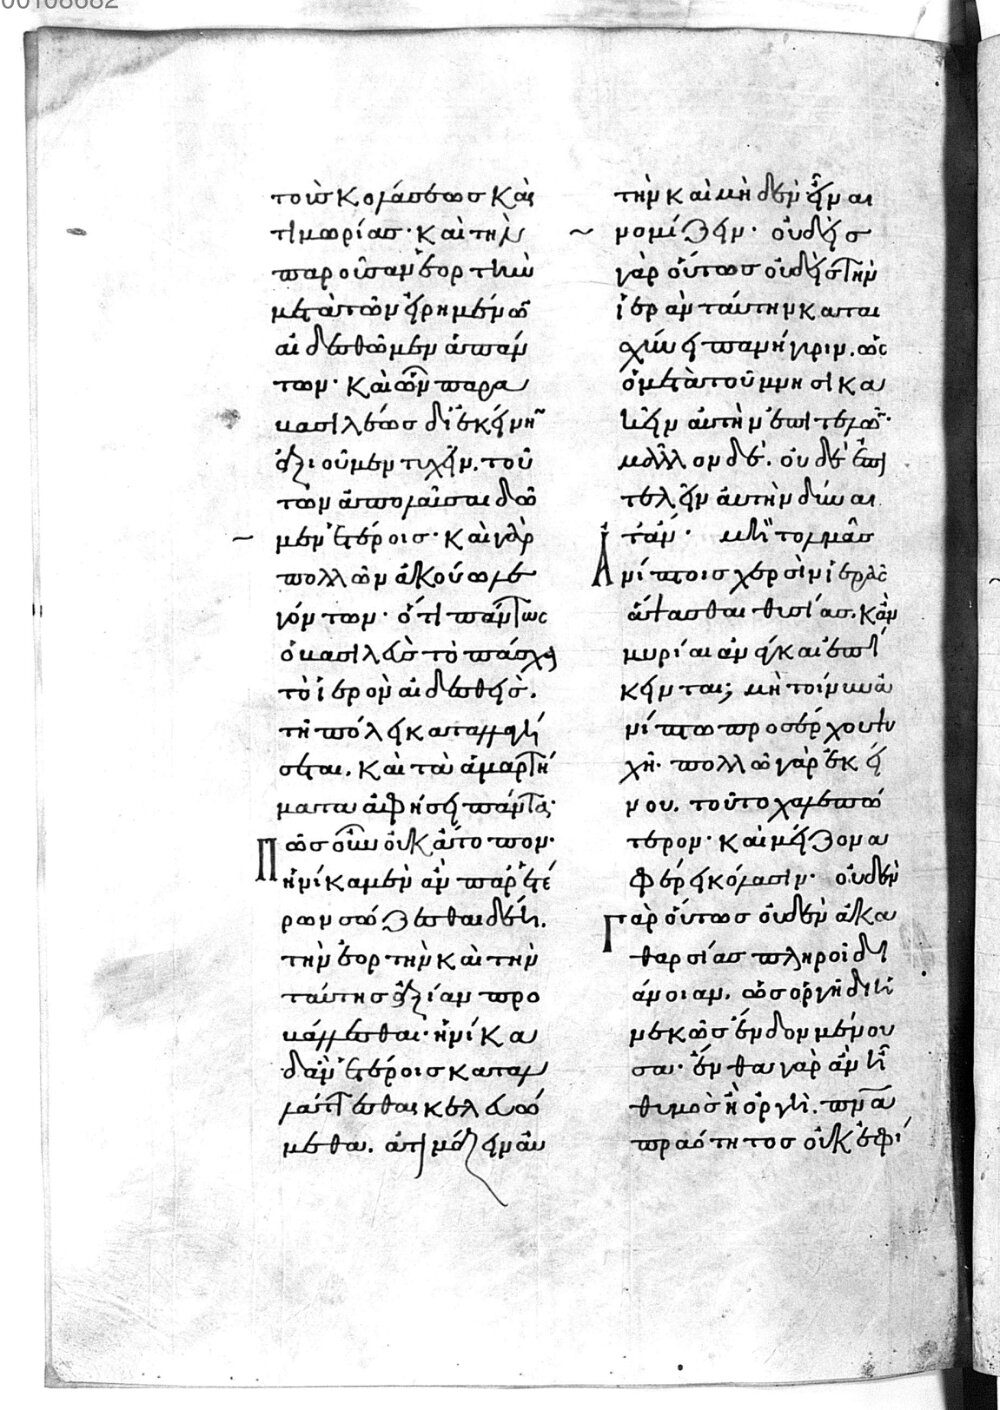 τοὺς κολάσεως καὶ
τιμωρίας· καὶ τὴν
παροῦσαν ἑορτὴν
μετὰ τῶν εἰρημένων
αἰδεσθῶμεν ἁπάν
των· καὶ ὧν παρὰ
βασιλέως δι' ἐκείνην
ἀξιοῦμεν τυχεῖν. τού
των ἀπολαῦσαι δῶ
μεν ἑτέροις· καὶ γὰρ
πολλῶν ἀκούω λε
γόντων· ὅτι πάντως
ὁ βασιλεὺς τὸ πάσχα
τὸ ἱερὸν αἰδεσθεὶς.
τῇ πόλει καταλλαγή
σεται. καὶ τὰ ἁμαρτή
ματα ἀφήσει πάντα·
Πῶς οὖν οὐκ ἄτοπον·
ἡνίκα μὲν ἂν παρ' ἑτέ
ρων σώζεσθαι δέη.
τὴν ἑορτὴν καὶ τὴν
ταύτης ἀξίαν προ
βάλλεσθαι· ἡνίκα
δ' ἂν ἑτέροις καταλ
λάττεσθαι κελευώ
μεθα. ἀτιμάζειν αὐ
τὴν καὶ μηδὲν εἶναι
νομίζειν· οὐδεὶς
γὰρ οὕτως οὐδεὶς τὴν
ἱερὰν ταύτην καται
σχύνει πανήγυριν. ὡς
ὁ μετὰ τοῦ μνησικα
κεῖν αὐτὴν ἐπιτελῶν·
μᾶλλον δέ. οὐδὲ ἐπι
τελεῖν αὐτὴν δύναι
τ' ἄν· μὴ τολμᾶς
Ἀνίπτοις χερσὶν ἱερᾶς
ἅψασθαι θυσίας. κἂν
μυρίαι ἀνάγκαι ἐπί
κεινται; μὴ τοίνυν ἀ
νίπτω προσέρχου ψυ
χῆ· πολλῶ γὰρ ἐκεί
νου. τοῦτο χαλεπώ
τερον· καὶ μείζονα
φέρει κόλασιν· οὐδὲν
Γὰρ οὕτως οὐδὲν ἀκα
θαρσίας πληροῖ δι
άνοιαν. ὡς ὀργὴ διη
νεκῶς ἔνδον μένου
σα· ἔνθα γὰρ ἂν ἦ
θυμὸς ἢ ὀργὴ. πνα
πραότητος οὐκ ἐφί